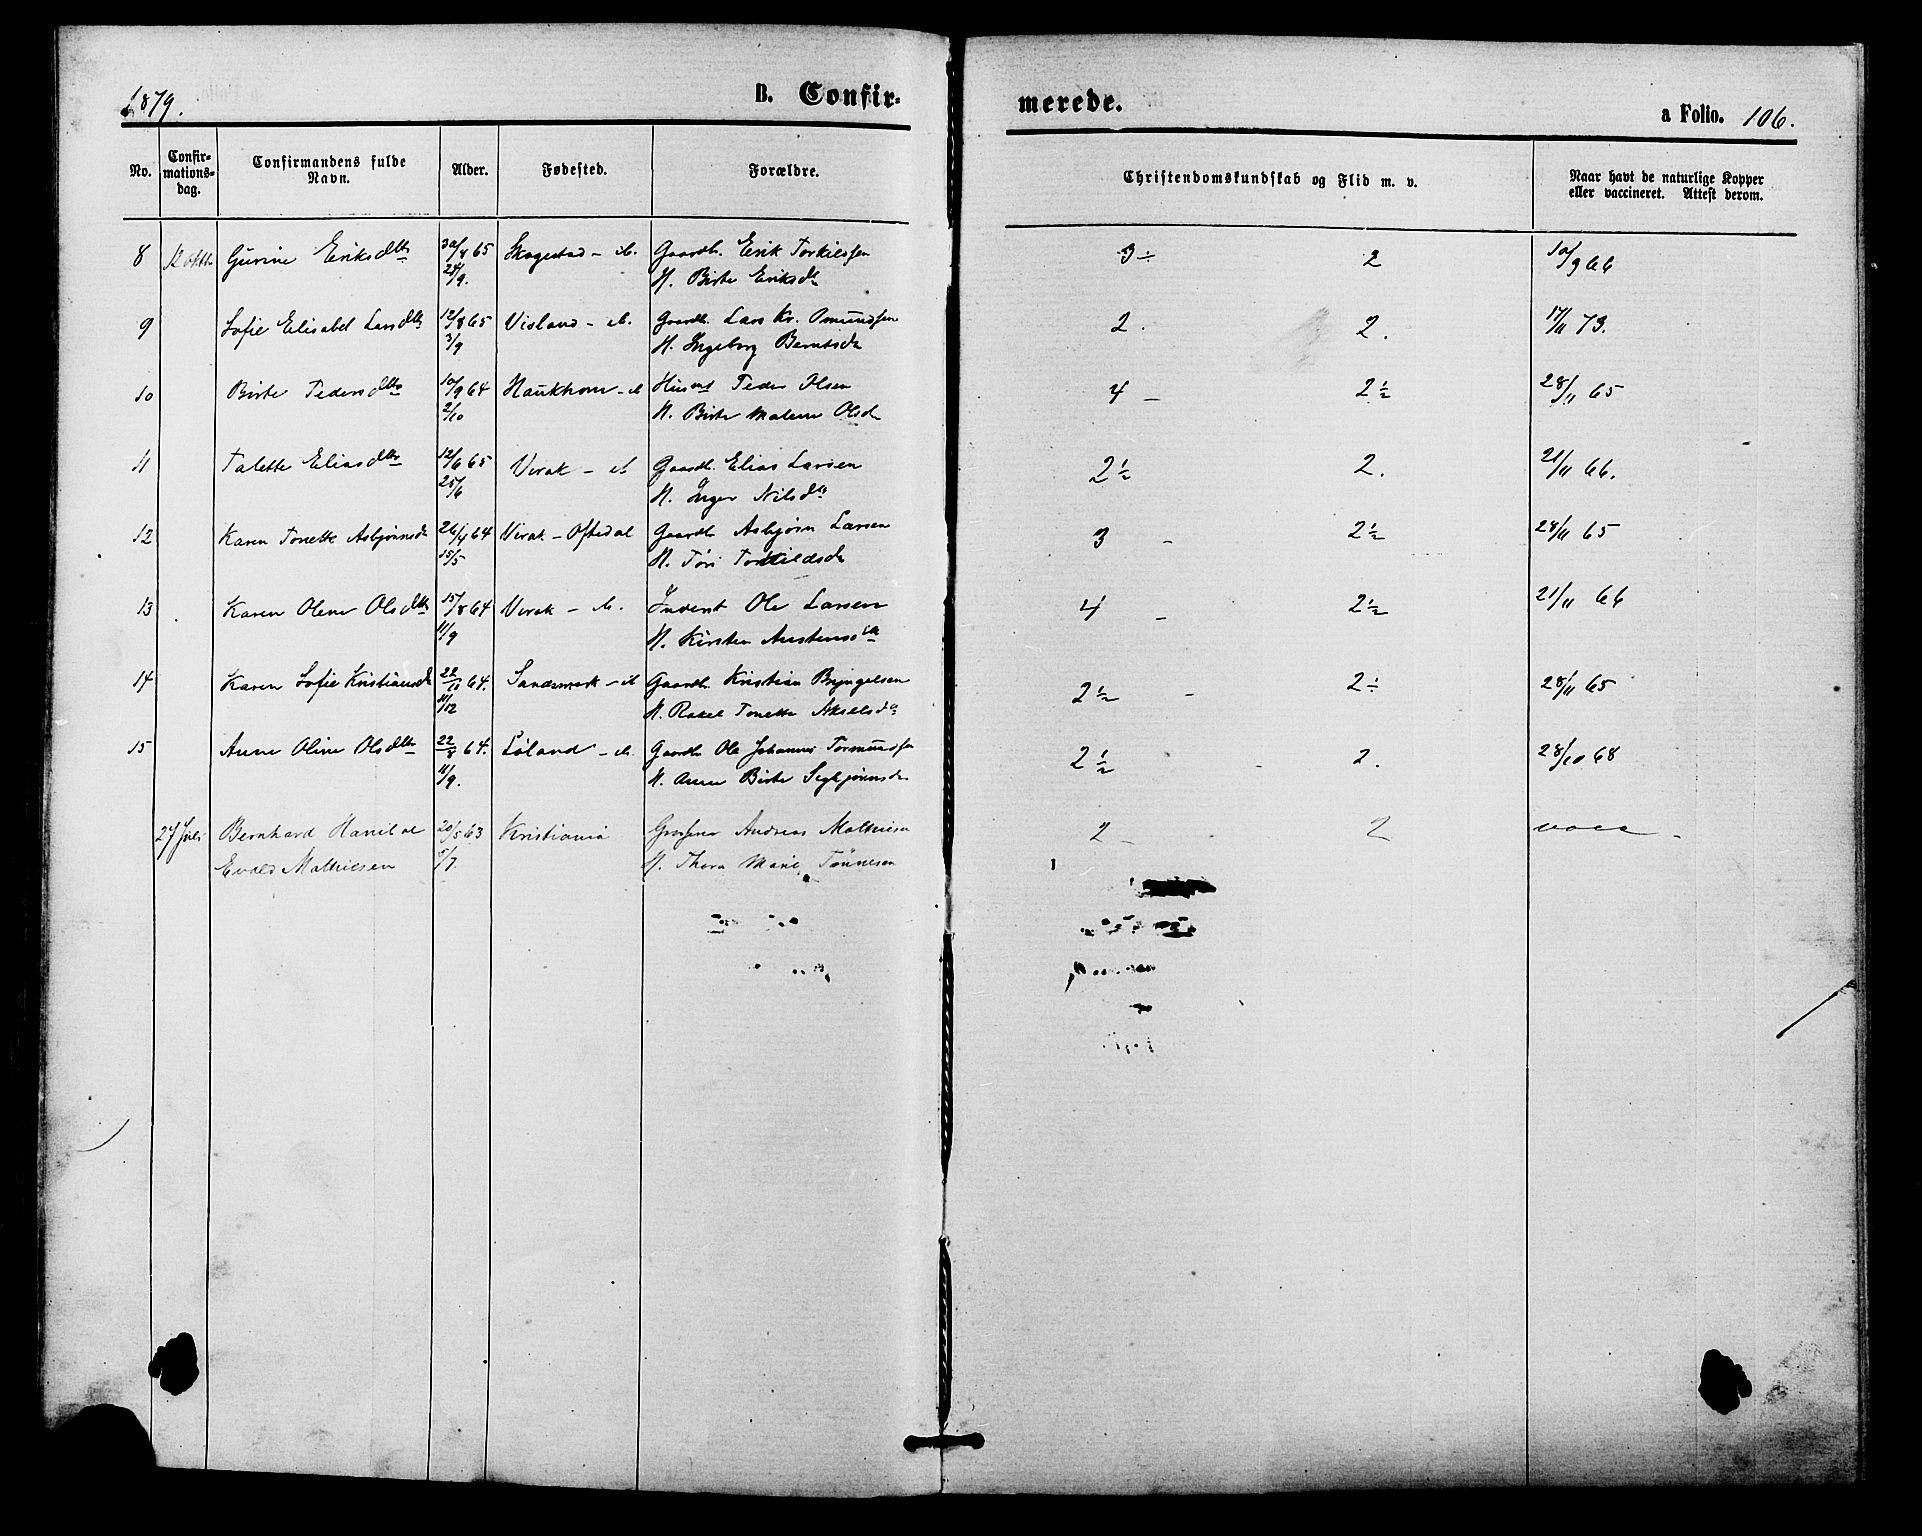 1879.
B. Confir-
merede.
a Folio. 106.
No.
Confir-
mations-
dag.
Confirmandens fulde
Navn.
Alder.
Fødested.
Forældre.
Christendomskundskab og Flid m. v.
Naar havt de naturlige Kopper
eller vaccineret. Attest derom.
8 12 Oktb Gurine Eriksdtr 30/8 65 Skogestad - M. Gaardb. Erik Torkilsen 3÷ 2 10/9 66
24/9. H. Birte Eriksd
9 Sofie Elisabet Larsdtr 12/8 65 Visland - M. Gaardb. Lars Kr. Omundsen 2. 2. 17/11 73.
3/9 H. Ingeborg Berntsd
10 Birte Pedersdtr 10/9 64 Haukhom - M Husmd Peder Olsen 4 - 2½ 28/11 65
2/10 H. Birte Malene Olsd
11 Talette Eliasdtr 12/6 65 Virak - M Gaardb. Elias Larsen 2½ 2. 21/11 66.
25/6 H. Inger Nilsdtr
12 Karen Tonette Asbjørnsd 26/4 64 Virak - Oftedal Gaardb Asbjørn Larsen 3 - 2½ 28/11 65
15/5 H. Tøri Torkildsd
13 Karen Olene Olsdtr 15/8 64 Virak - M. Inderst Ole Larsen 4 - 2½ 21/11 66
11/9 H. Kirsten Austensdtr
14 Karen Sofie Kristiansd 22/10 64. Sandsmark - M Gaardb. Kristian Bryngelsen 2½ - 2÷ 28/11 65
11/12 H. Rakel Tonette Akselsdtr
15 Anne Oline Olsdtr 22/8 64. Løland - M. Gaardb Ole Johannes Tormundsen 2½ - 2. 28/10 68
11/9. H. Anne Birte Segbjørnsd
27 Juli Bernhard 20/5 63 Kristiania Andreas Mathisen 2 - 2 vacc -
Evald Mathiesen 5/7. H. Thora Marie Tønnesen